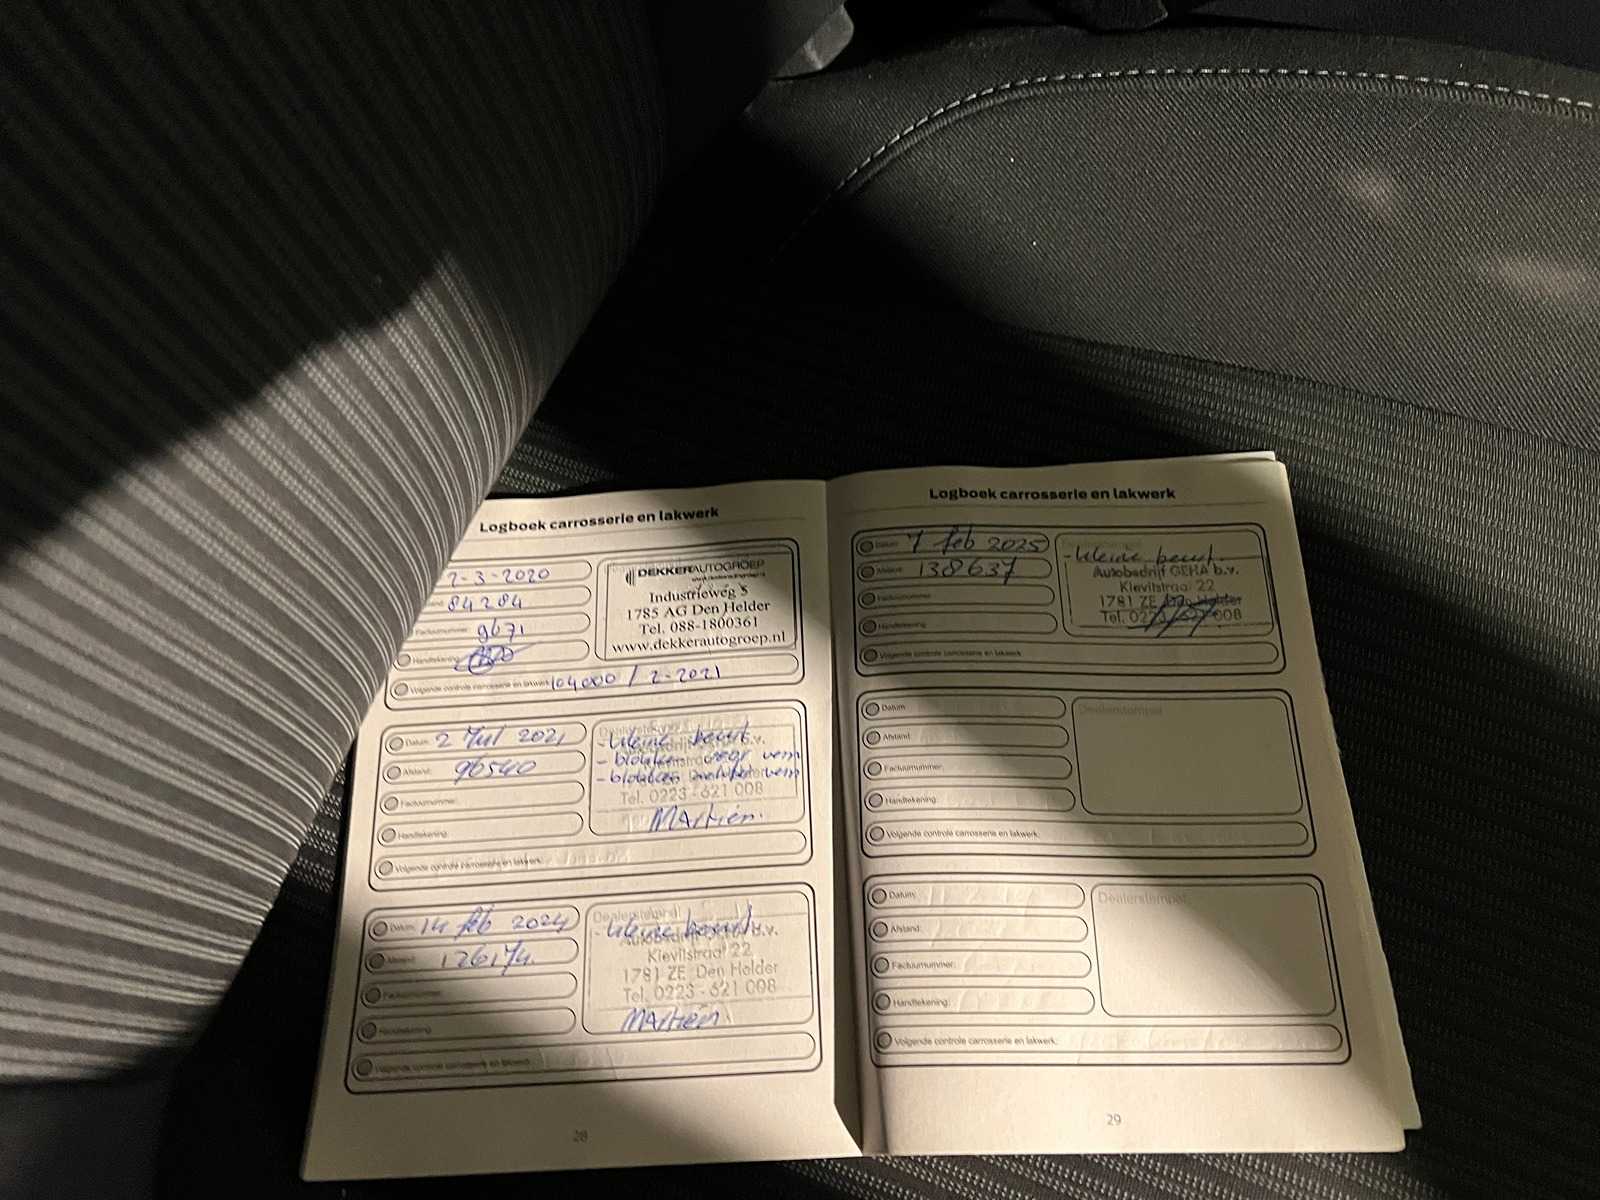 Logboek carrosserie en lakwerk
2-3-2020
84284
Factuurnummer: 9671
Handtekening:
Volgende controle carrosserie en lakwerk: 104000 / 2-2021
DEKKERAUTOGROEP
www.dekkerautogroep.nl
Industrieweg 5
1785 AG Den Helder
Tel. 088-1800361
www.dekkerautogroep.nl
Datum: 2 Jul 2021
Afstand: 96540
Factuurnummer:
Handtekening:
Volgende controle carrosserie en lakwerk:
- kleine beurt
- blokken voor vern
- blokken
Tel. 0223 - 621 008
Martien.
Datum: 14 feb 2024
Afstand: 126174
Factuurnummer:
Handtekening:
Volgende controle carrosserie en lakwerk:
Dealerstempel
- kleine beurt
Autobedrijf b.v.
Kievitstraat 22
1781 ZE Den Helder
Tel. 0223 - 621 008
Martien
28
Logboek carrosserie en lakwerk
Datum: 7 feb 2025
Afstand: 138637
Factuurnummer:
Handtekening:
Volgende controle carrosserie en lakwerk:
- kleine beurt.
Autobedrijf GEHA b.v.
Kievitstraat 22
1781 ZE Den Helder
Tel. 008
Datum:
Afstand:
Factuurnummer:
Handtekening:
Volgende controle carrosserie en lakwerk:
Dealerstempel
Datum:
Afstand:
Factuurnummer:
Handtekening:
Volgende controle carrosserie en lakwerk:
Dealerstempel
29